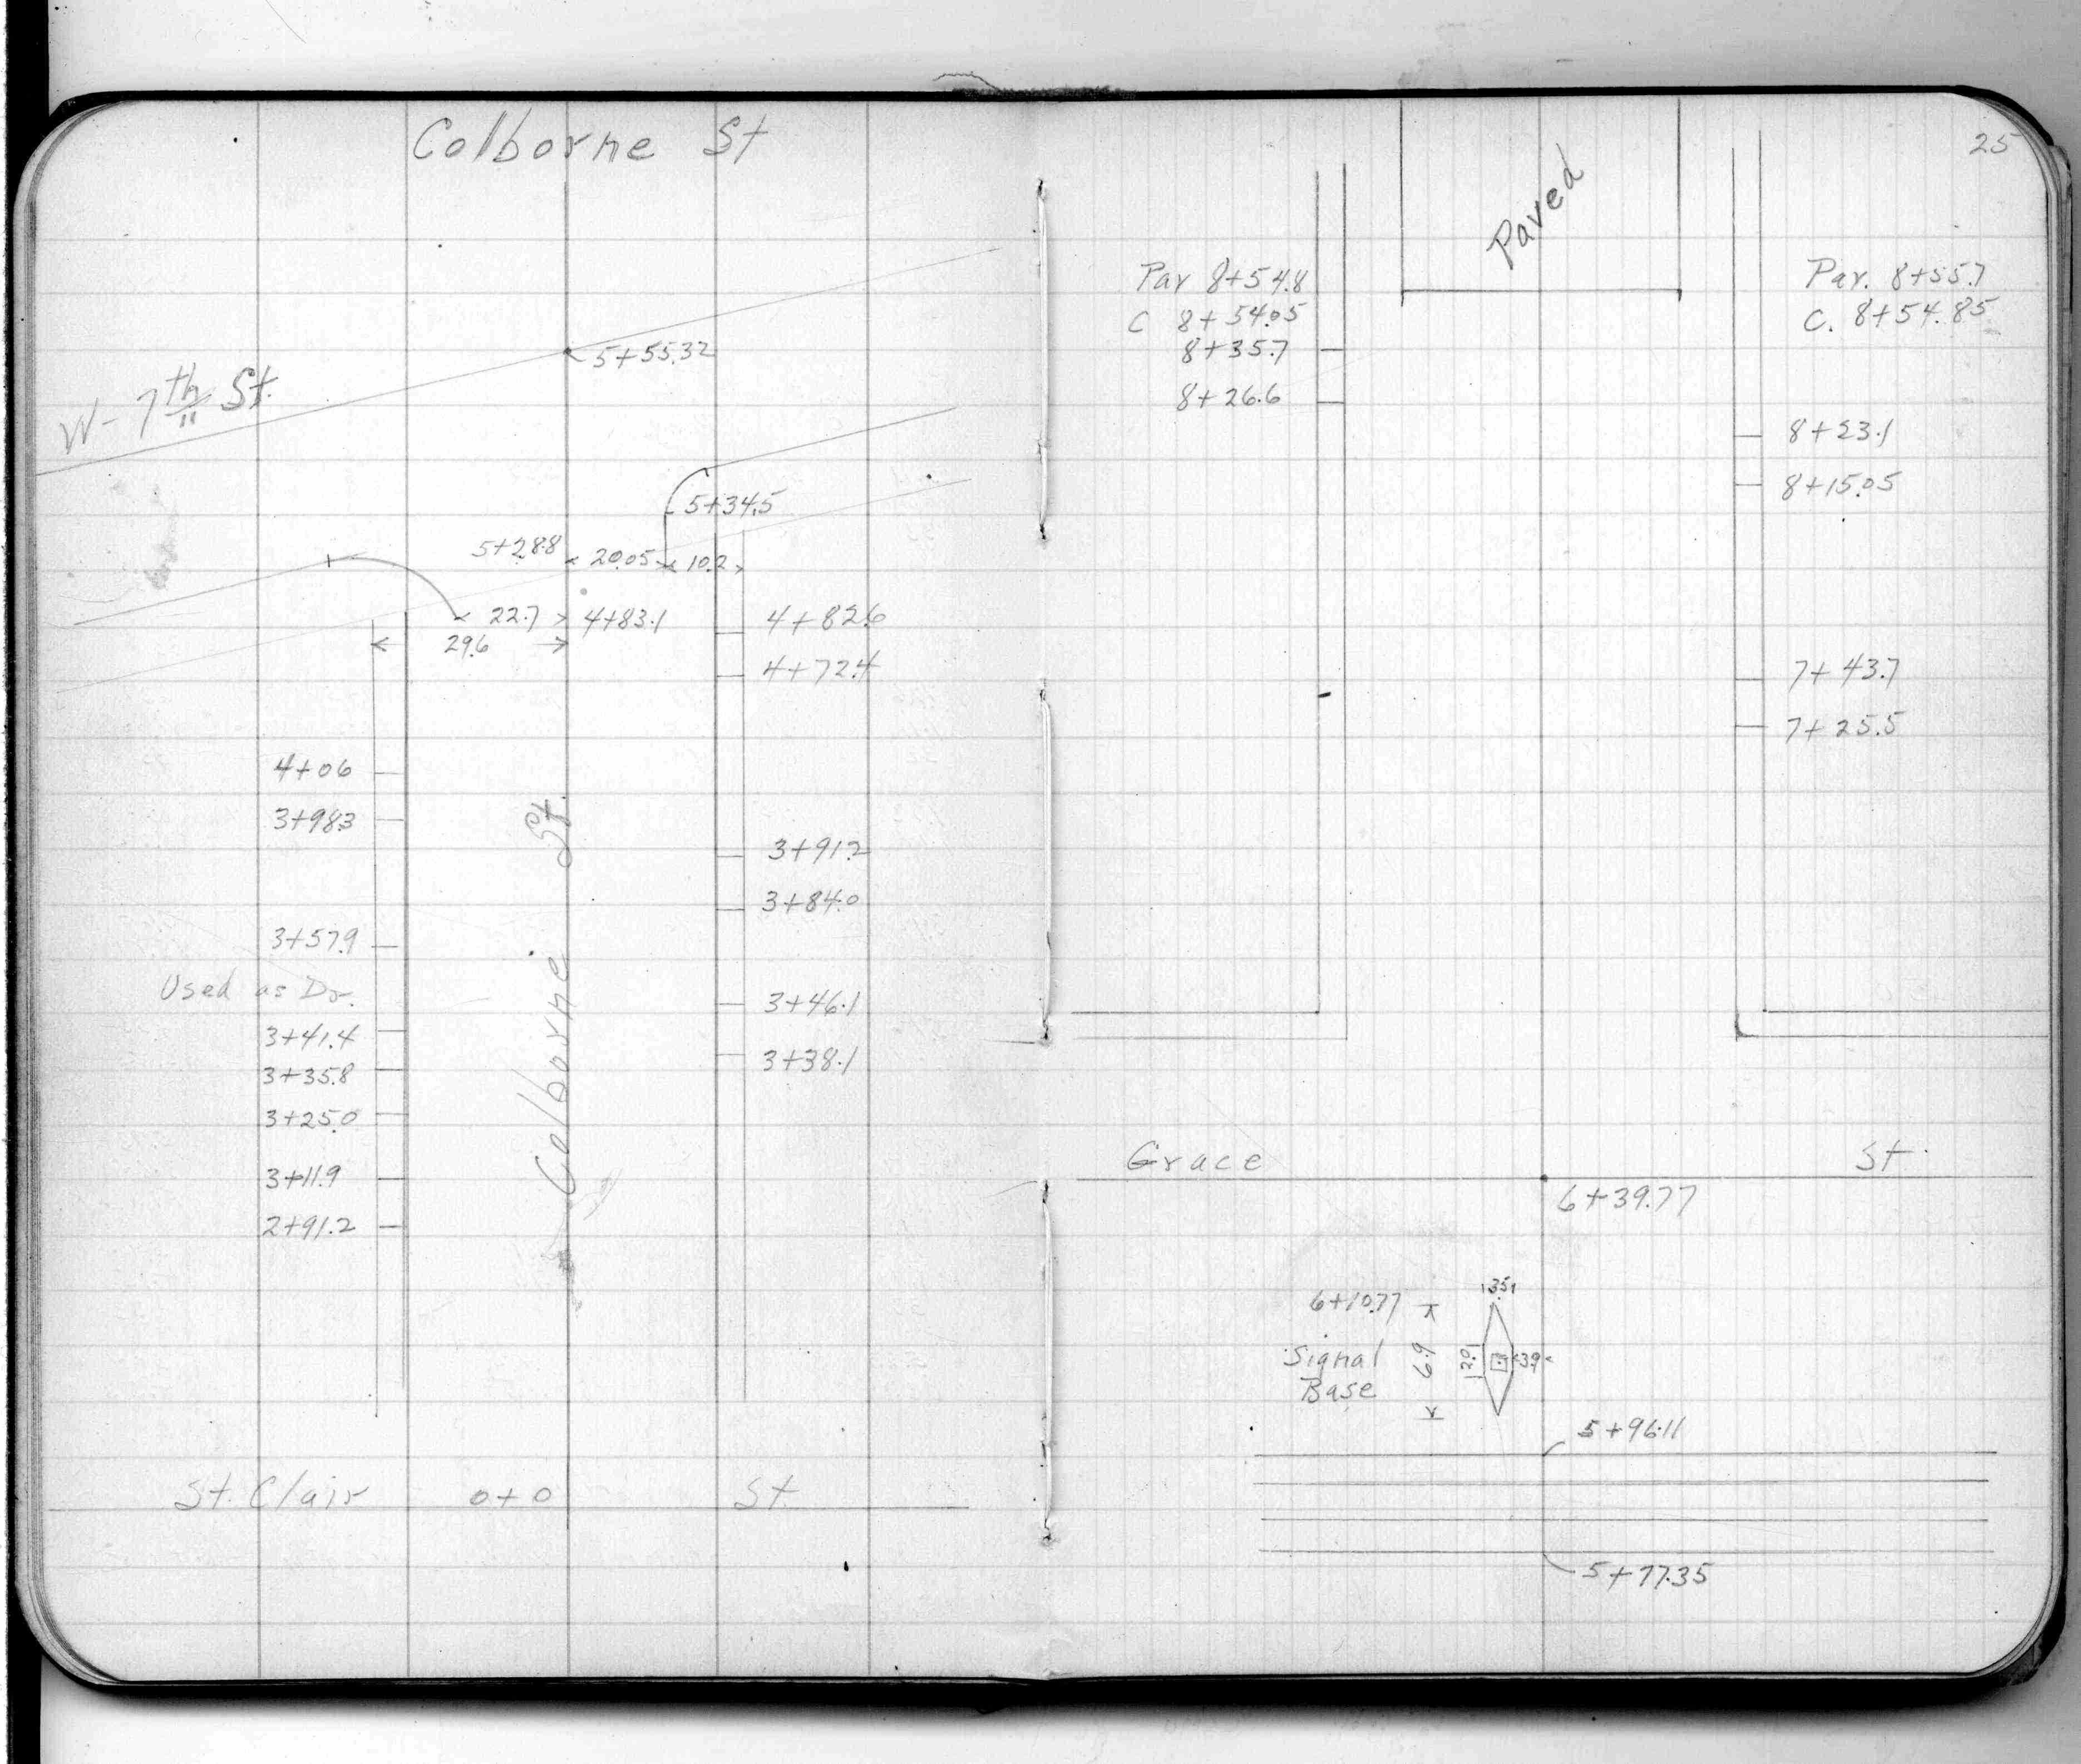 Colborne St
W-7th St.
5+55.32
5+34.5
5+28.8
20.05
10.2
22.7
4+83.1
29.6
4+82.6
4+72.4
4+06
3+98.3
3+91.2
3+84.0
3+57.9
Used as Dr.
3+46.1
3+41.4
3+38.1
3+35.8
3+25.0
3+11.9
2+91.2
Colborne St.
St. Clair 0+0 St
25
Paved
Par 8+54.8
C 8+54.05
8+35.7
8+26.6
Par. 8+55.7
C. 8+54.85
8+23.1
8+15.05
7+43.7
7+25.5
Grace St.
6+39.77
6+10.77
Signal
Base
6.9
2.0
3.5
3.9
5+96.11
5+77.35